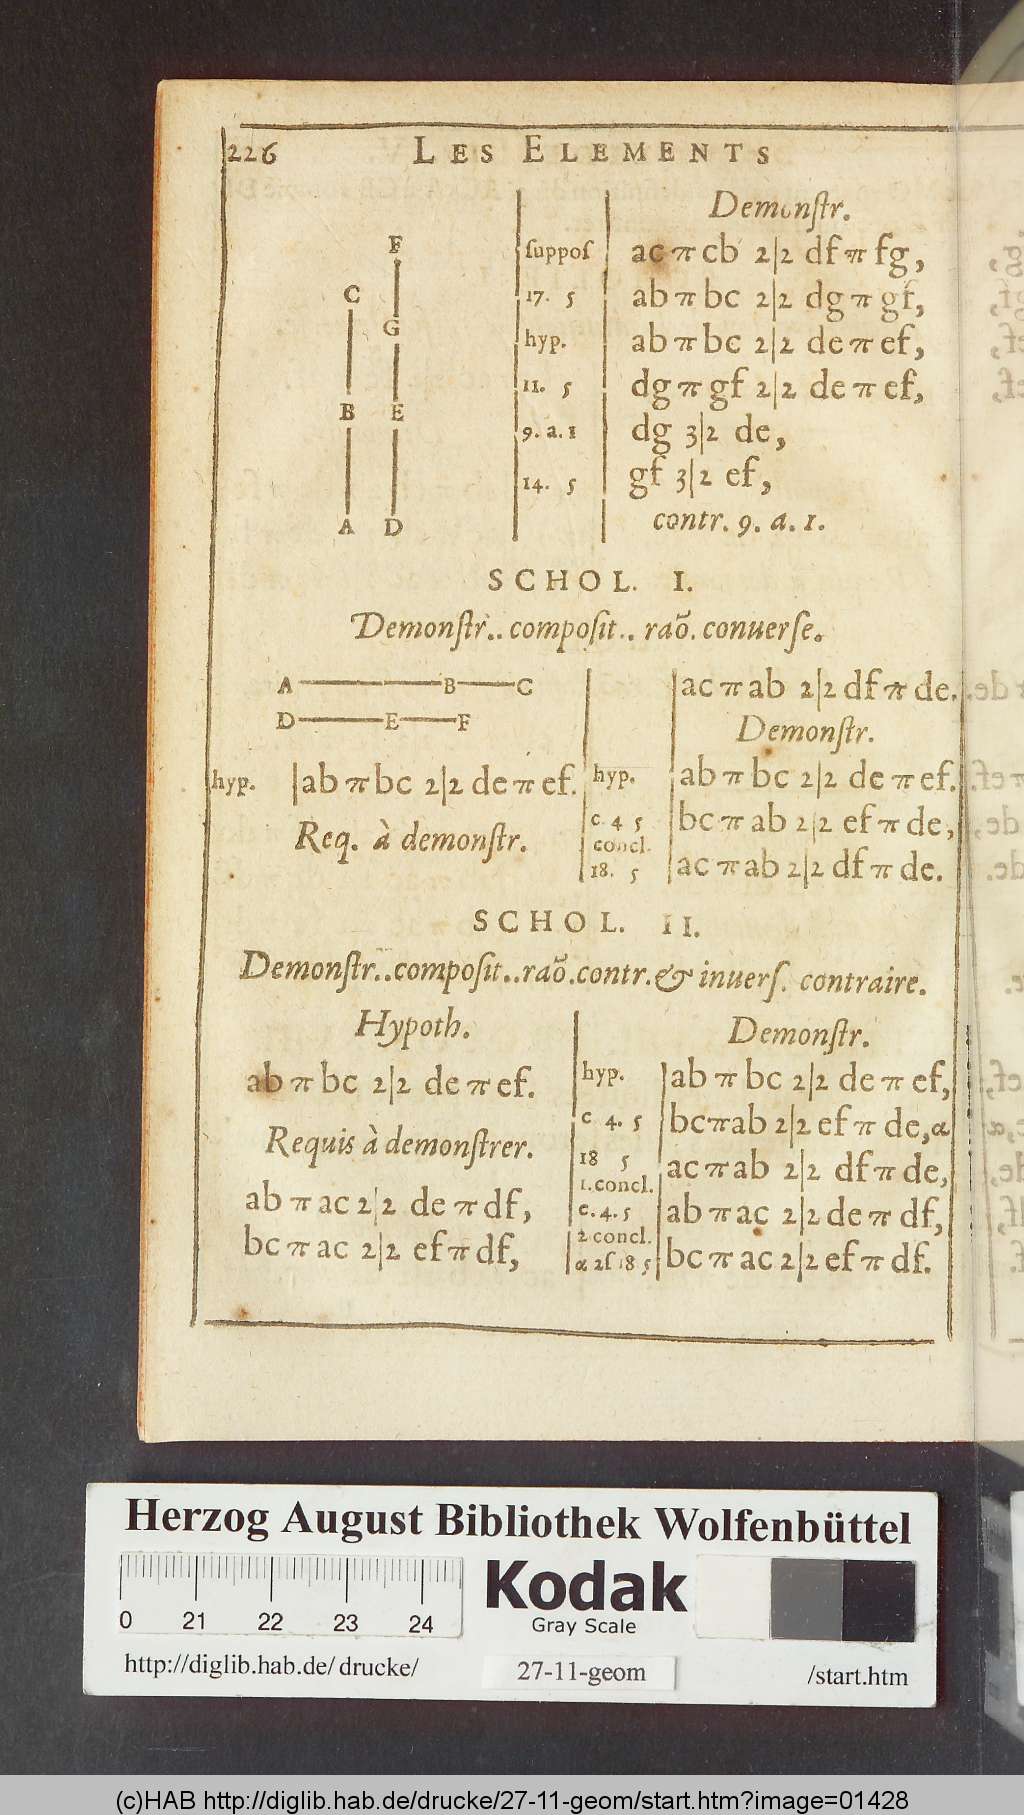 226 LES ELEMENTS
Demonſtr.
F
C
G
B E
A D
ſuppoſ ac π cb 2|2 df π fg,
17. 5 ab π bc 2|2 dg π gf,
hyp. ab π bc 2|2 de π ef,
11. 5 dg π gf 2|2 de π ef,
9. a. 1 dg 3|2 de,
14. 5 gf 3|2 ef,
contr. 9. a. 1.
SCHOL. I.
Demonſtr.. compoſit.. raõ. conuerſe.
A B C
D E F
hyp. ab π bc 2|2 de π ef.
Req. à demonſtr.
ac π ab 2|2 df π de.
Demonſtr.
hyp. ab π bc 2|2 de π ef.
c. 4 5 bc π ab 2|2 ef π de,
concl.
18. 5 ac π ab 2|2 df π de.
SCHOL. II.
Demonſtr..compoſit..raõ.contr.& inuerſ. contraire.
Hypoth.
ab π bc 2|2 de π ef.
Requis à demonſtrer.
ab π ac 2|2 de π df,
bc π ac 2|2 ef π df,
Demonſtr.
hyp. ab π bc 2|2 de π ef,
c 4. 5 bc π ab 2|2 ef π de,α
18 5 ac π ab 2|2 df π de,
1.concl.
c. 4. 5 ab π ac 2|2 de π df,
2 concl.
α 2ſ 18 5 bc π ac 2|2 ef π df.
Herzog August Bibliothek Wolfenbüttel
0 21 22 23 24
Kodak
Gray Scale
http://diglib.hab.de/drucke/ 27-11-geom /start.htm
(c)HAB http://diglib.hab.de/drucke/27-11-geom/start.htm?image=01428